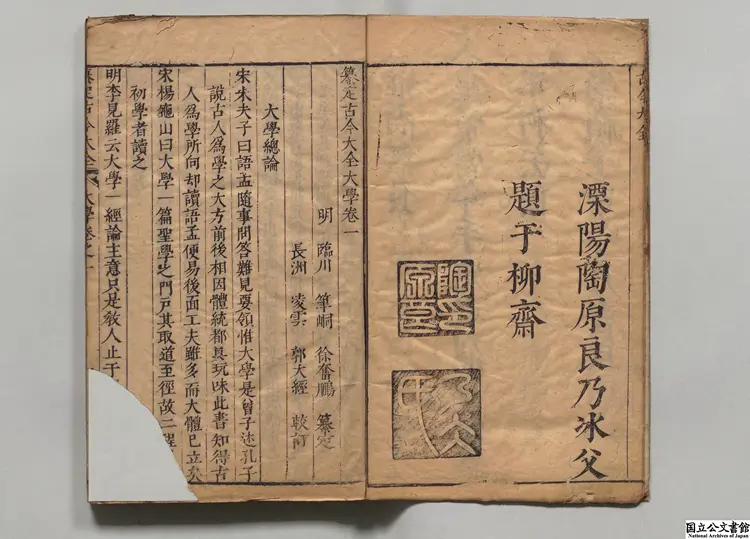 溧陽陶原良乃冰父
題于柳齋
纂定古今大全大學卷一
明 臨川 筆峒 徐奮鵬 纂定
長洲 凌雲 郭大經 較訂
大學總論
宋朱夫子曰語孟隨事問答難見要領惟大學是曾子述孔子
說古人爲學之大方前後相因體統都具玩味此書知得古
人爲學所向却讀語孟便易後面工夫雖多而大體已立矣
宋楊龜山曰大學一篇聖學之門戶其取道至徑故二程
初學者讀之
明李見羅云大學一經論主意只是敎人止于
纂定古今大全 大學卷之一
国立公文書館
National Archives of Japan